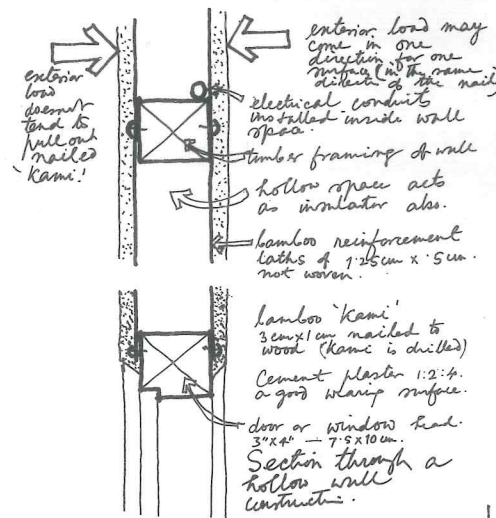 exterior
load
doesnot
tend to
pull out
nailed
'kami!
exterior load may
come in one
direction for one
surface (in the same
directn of the nail)
electrical conduits
installed inside wall
space.
timber framing of wall
hollow space acts
as insulator also.
bamboo reinforcement
laths of 1.25cm x .5cm.
not woven.
bamboo 'kami'
3cmx1cm nailed to
wood (kami is drilled)
Cement plaster 1:2:4.
a good wearing surface.
door or window head.
3"x4" — 7.5x10cm.
Section through a
hollow wall
constructn.